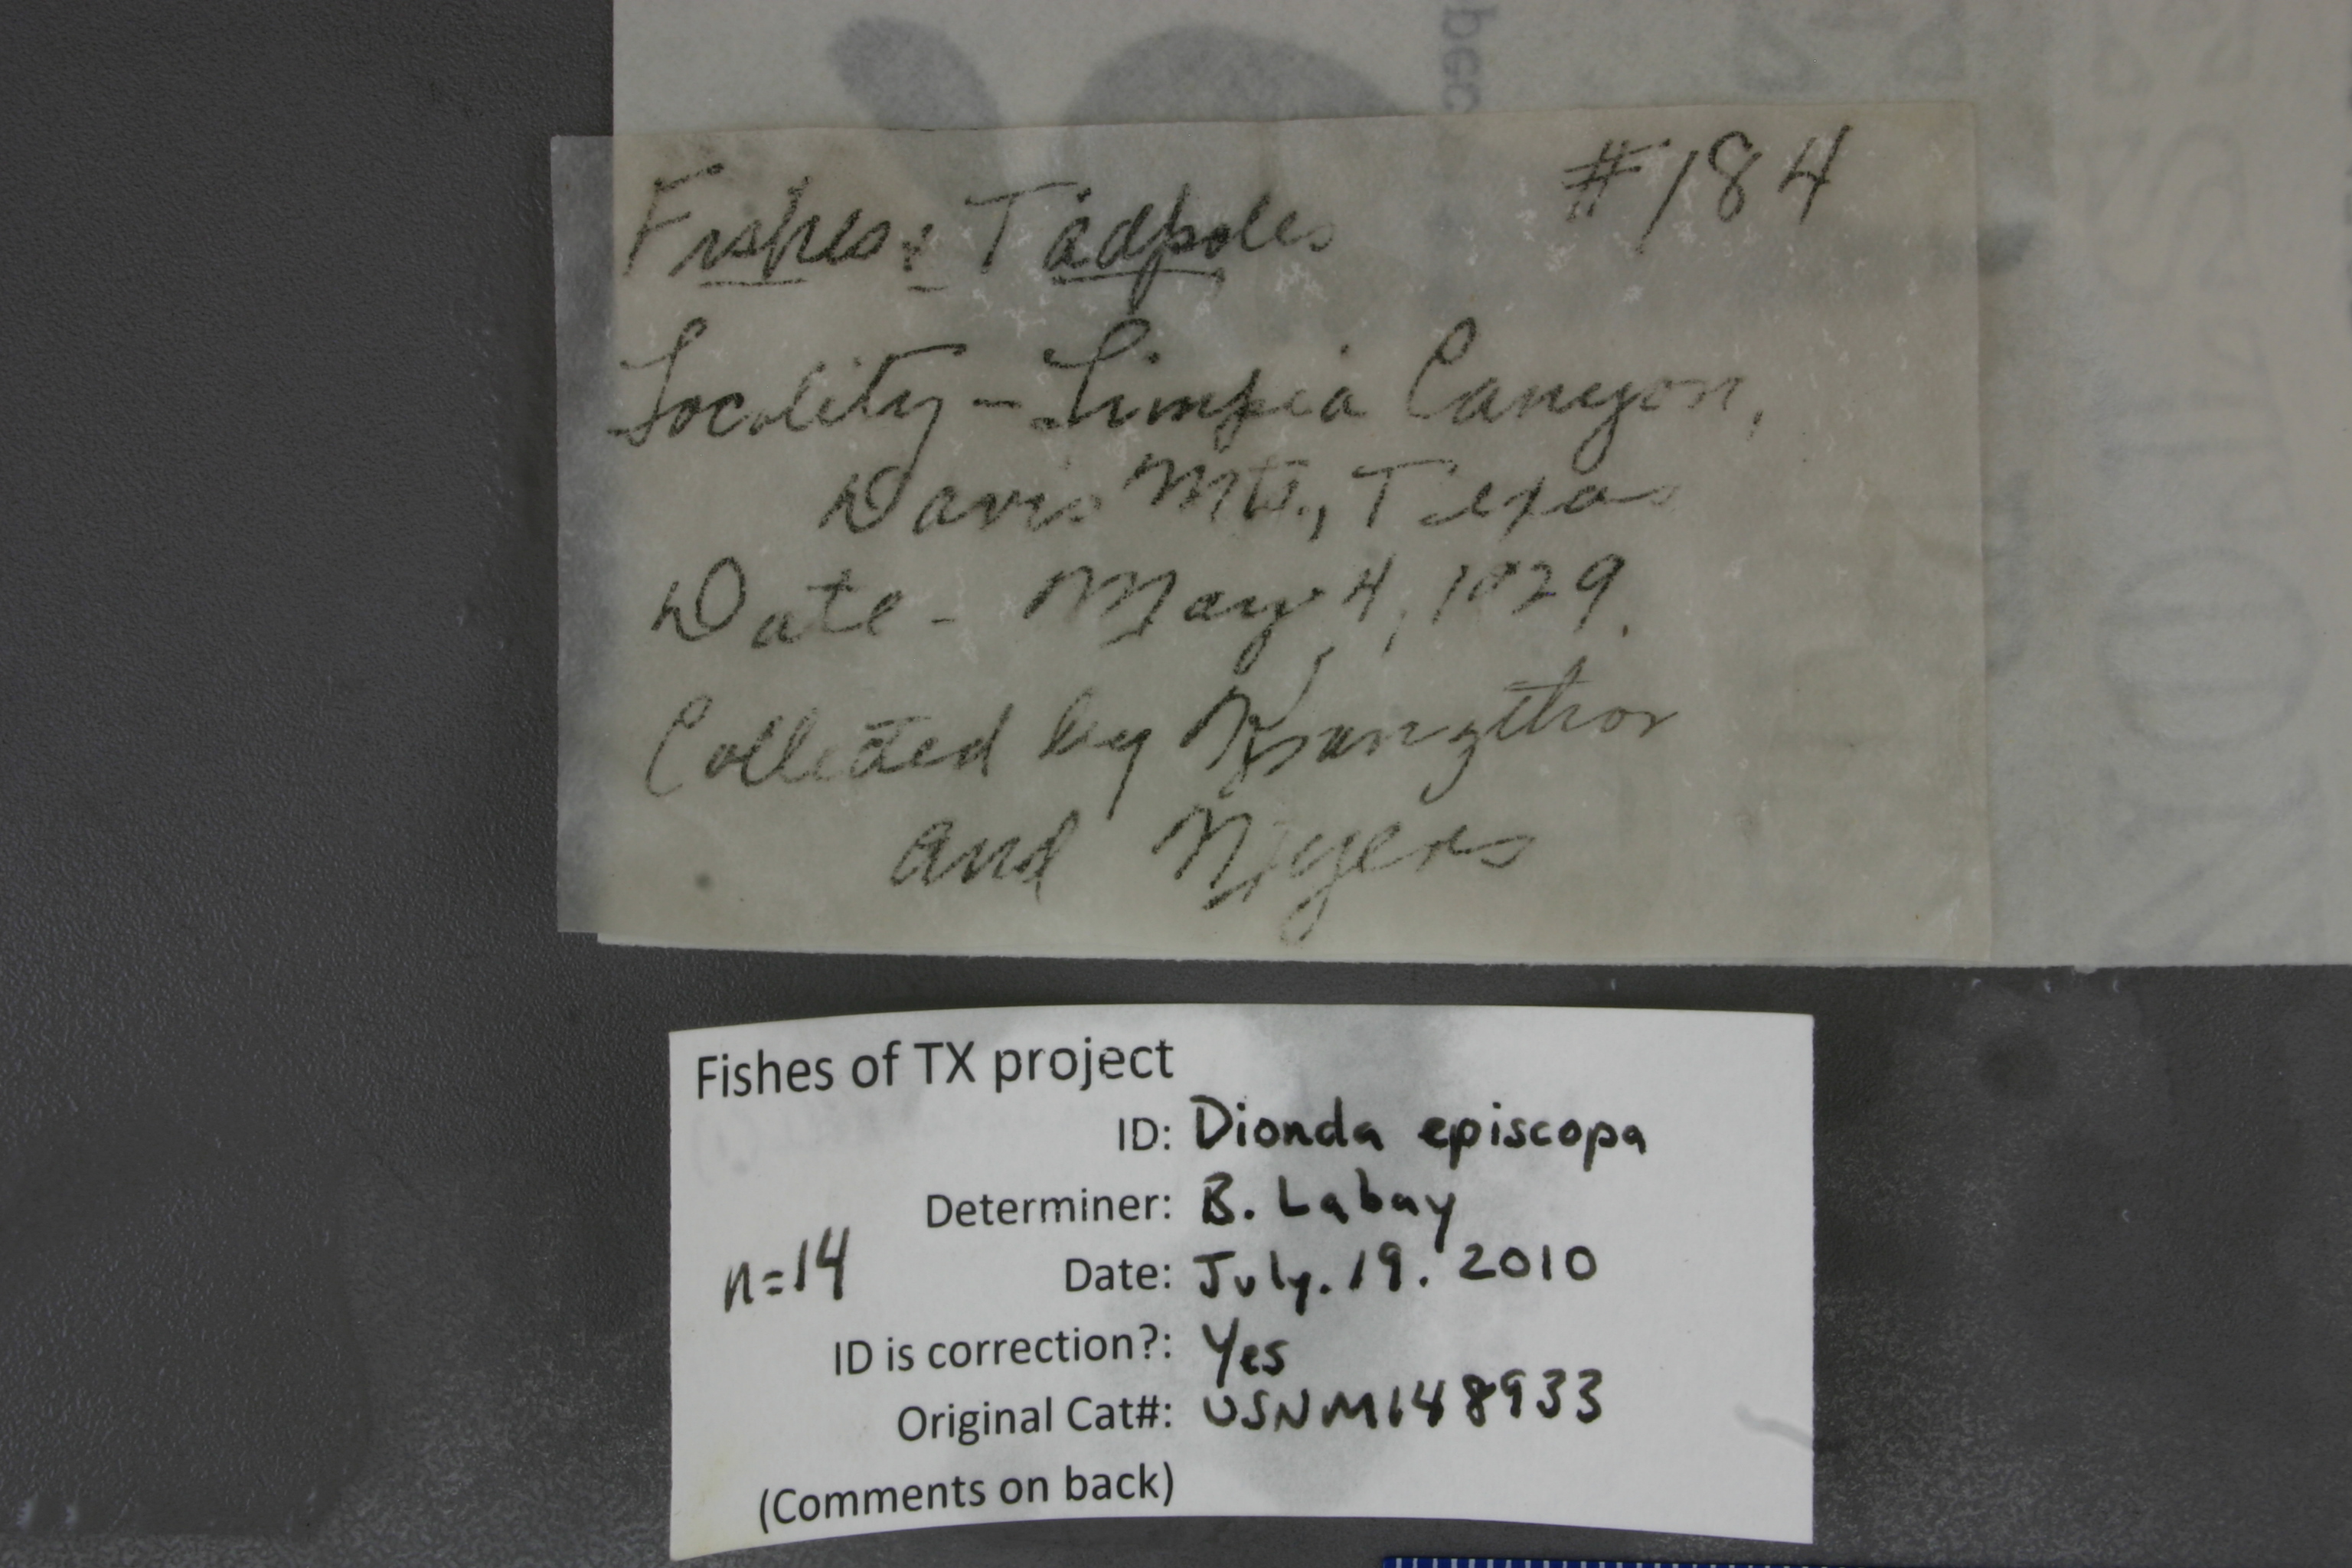 Fishes & Tadpoles #184
Locality - Limpia Canyon,
Davis Mts., Texas
Date - May 4, 1929.
Collected by
and Myers
Fishes of TX project
ID: Dionda episcopa
Determiner: B. Labay
n=14
Date: July. 19. 2010
ID is correction?: Yes
Original Cat#: USNM148933
(Comments on back)